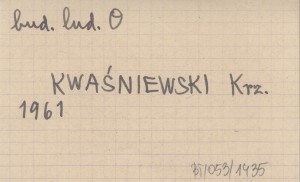 bud. lud. O
KWAŚNIEWSKI Krz.
1961
BI/053/1435